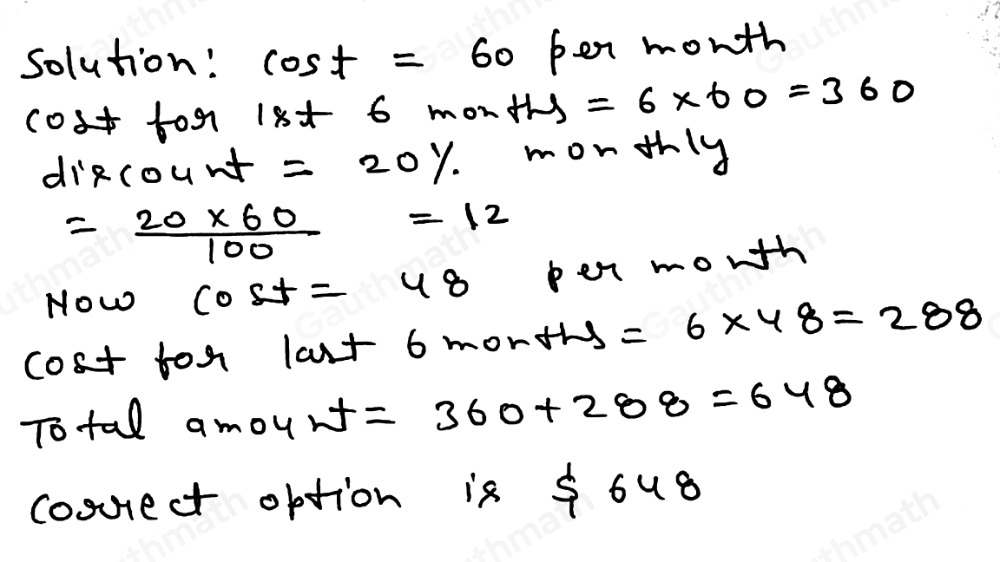 Solution: cost = 60 per month
cost for 1st 6 months = 6 × 60 = 360
discount = 20% monthly
= 20 × 60 / 100 = 12
Now cost = 48 per month
cost for last 6 months = 6 × 48 = 288
Total amount = 360 + 288 = 648
correct option is $ 648